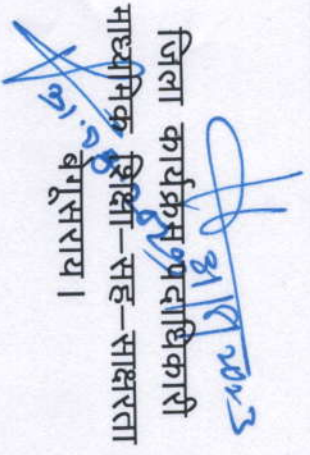 जिला कार्यक्रम पदाधिकारी
माध्यमिक शिक्षा–सह–साक्षरता
बेगूसराय।